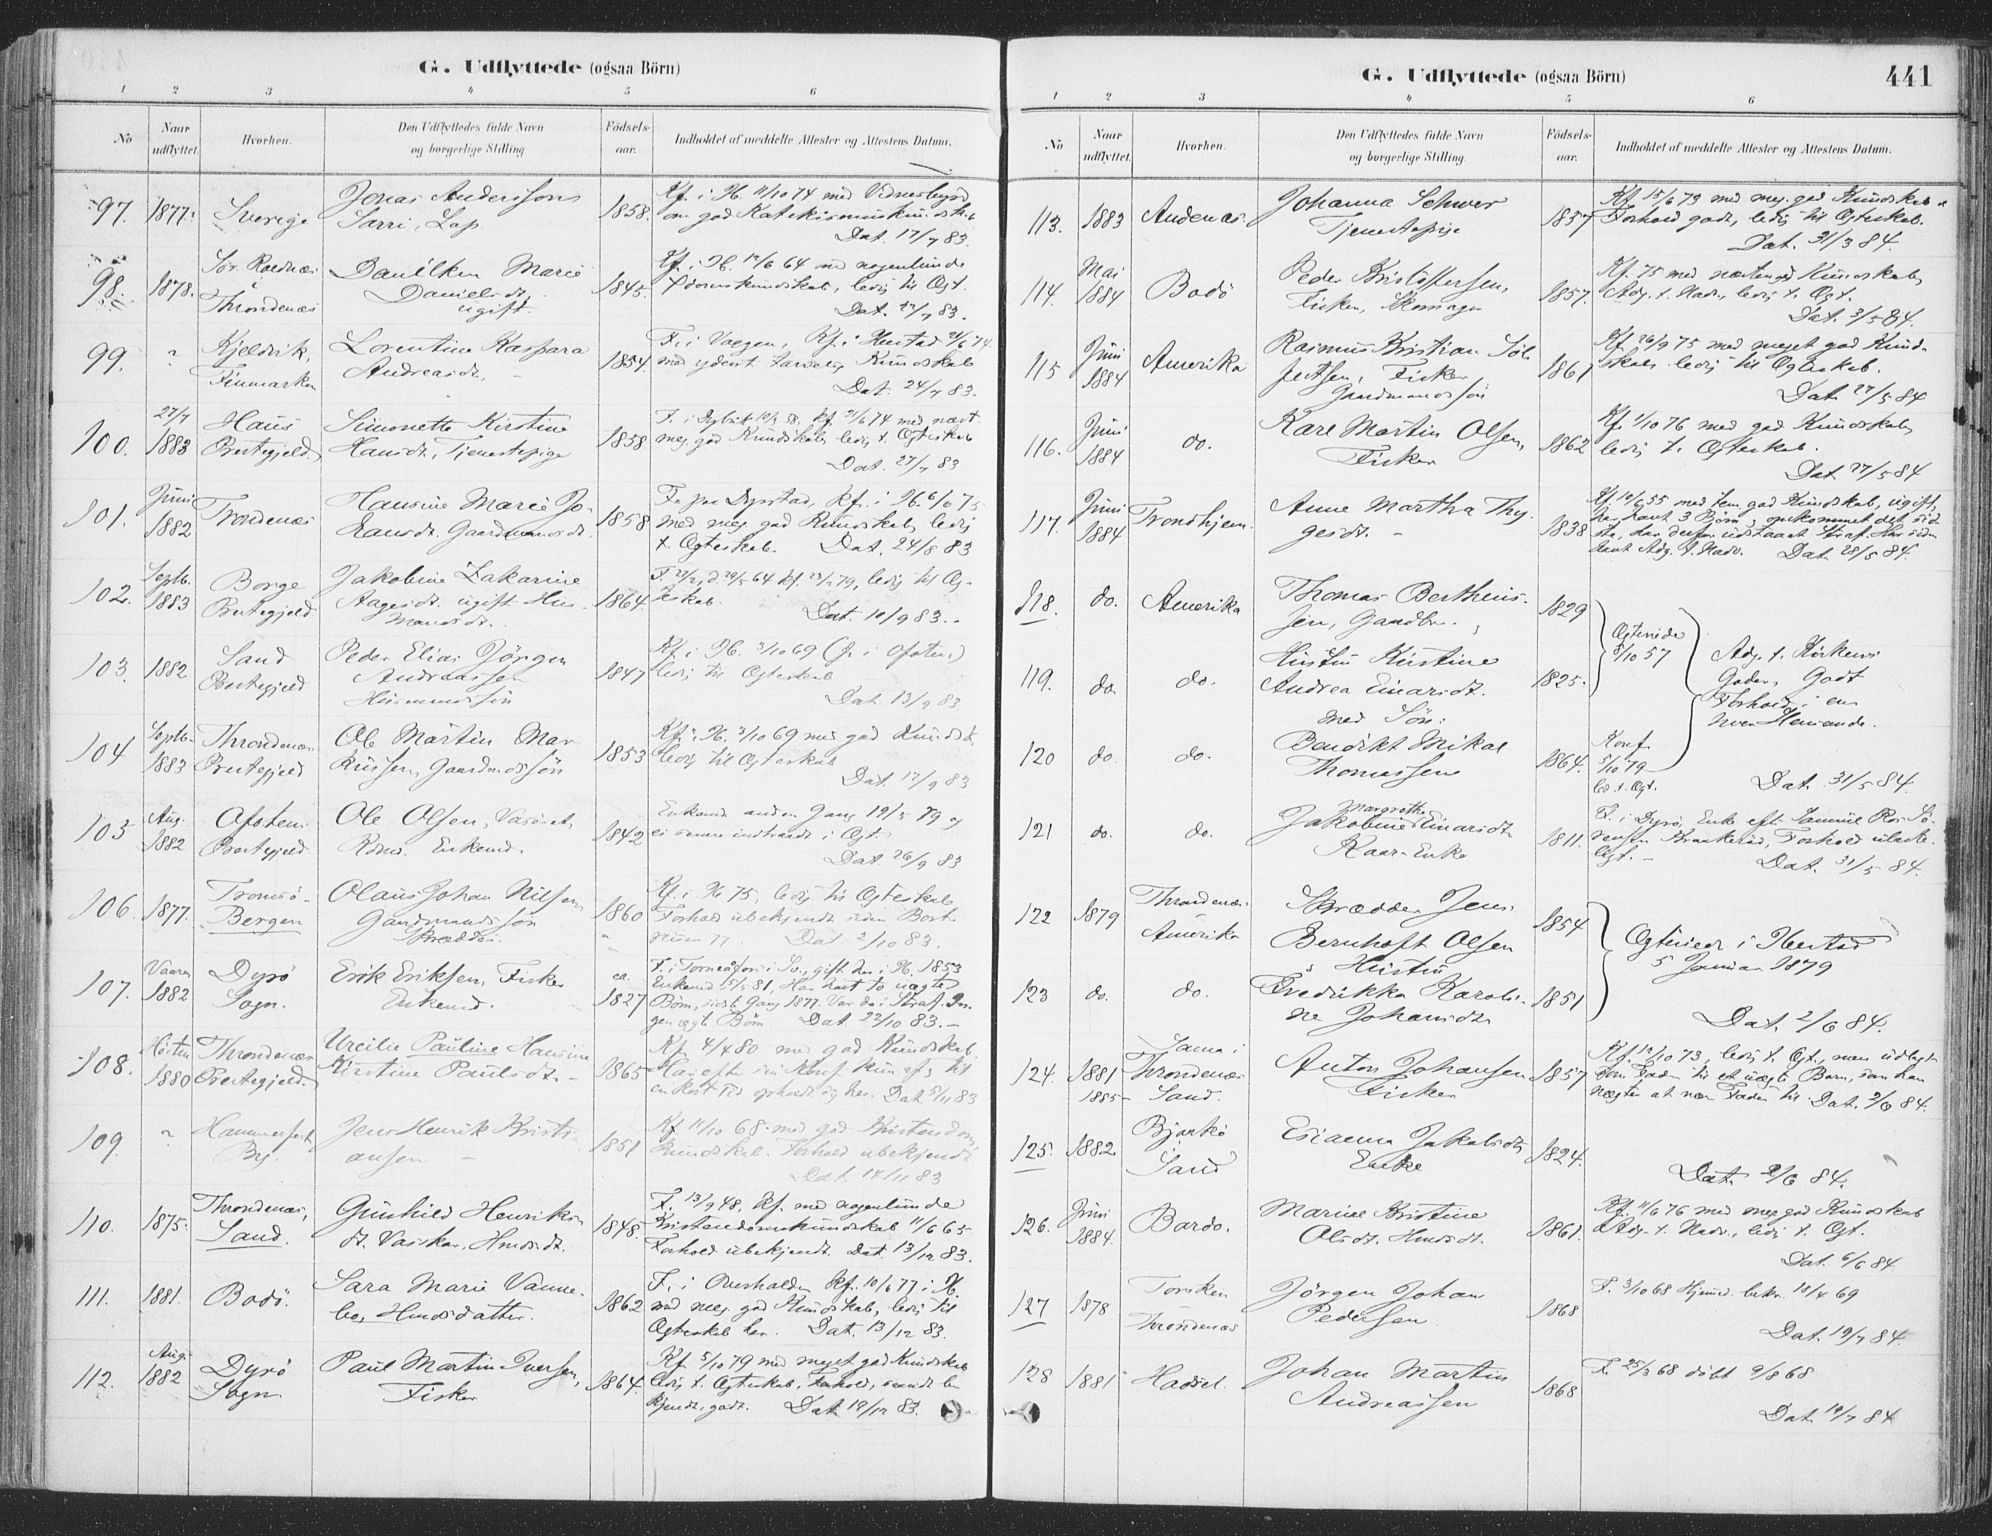 G. Udflyttede (ogsaa Börn)
1 2 3 4 5 6
No
Naar udflyttet.
Hvorhen.
Den Udflyttedes fulde Navn og borgerlige Stilling
Födsels-aar.
Indholdet af meddelte Attester og Attestens Datum.
97. 1877. Sverige Jonas Anderssons 1858. Kf. i H. 11/10 74 med Vidnesbyrd
Sarri, Lap om god Katekismuskundskab
Dat. 17/7 83.
98. 1878. Throndenæs Danilken Marie 1845. Kf. i H. 64 med nogenlunde
Danielsdt. ugift. ledig til Ægt.
Dat. 83.
99. Kjelvik, Finmarken Lorentine Kaspara 1854 Kf. i Ibestad 74
Andreasdt. Kundskab
Dat. 24/7 83.
100. 27/7 1883 Haus Prestegjeld Simonette Kirstine 1858 74 med
Hansdt, Tjenestepige meg. god Kundskab, ledig t. Ægteskab
Dat. 27/7 83
101. Juni 1882 Trondenæs Hansine Marie Jo- 1858 F. paa Dyrstad, kf. i H. 6/6 75
hansdt. Gaardmandsdt. med meg. god Kundskab, ledig
t. Ægteskab. Dat. 24/8 83
102. Septb. 1883 Borge Prestegjeld Jakobine Zakarine 1864. 64 kf. 79, ledig til Æg-
Aagesdt. ugift Hus- teskab.
mandsdt. Dat. 10/9 83.
103. 1882 Sand Prestegjeld Peder Elias Jörgen 1847 Kf. i H. 3/10 69 (f. i Ofoten)
Andreassen ledig til Ægteskab
Husmandssön Dat. 13/9 83
104 Septb. 1883 Throndenæs Prestegjeld Ole Martin Mar- 1853 Kf. i H. 3/10 69 med god Kundsk.
kussen, Gaardmdssön ledig til Ægteskab
Dat. 17/9 83
105 Aug. 1882 Ofoten Prestegjeld Ole Olsen, 1842 Enkemd. anden Gang 19/5 79 og
Enkemd. ei senere indtraadt i Ægt.
Dat. 26/9 83
106. 1877. Tromsö - Bergen Olaus Johan Nilsen 1860 Kf. i H 75, ledig til Ægteskab
Gaardmandssön Forhold ubekjendt siden Bort-
Skrædder. reisen 77. Dat. 2/10 83.
107. Vaaren 1882 Dyrö Sogn. Erik Eriksen, Fisker ca. 1827 F. i Torneåfors i Sv., gift her i H. 1853
Enkemd. Enkemd 15/5 81, Har havt to uægte
Börn, sidste Gang 1877. Var da i Straf. In-
gen ægte Börn. Dat. 22/10 83.
108. Hösten 1880 Throndenæs Prestegjeld. Pauline Hansine 1865 Kf. 4/4 80 med god Kundskab.
Kirstine Paulsdt. Har efter sin Konf. kun
en kort Tid opholdt sig her. Dat. 5/11 83
109. Hammerfest By. Jens Henrik Kristi- 1851 Kf 11/10 68 med god Kristendoms
ansen kundskab. Forhold ubekjendt
Dat. 14/11 83
110. 1875. Throndenæs, Sand. Gunhild Henriks- 1848. F. 13/9 48, kf. med nogenlunde
dt. Hmdsdt. Kristendomskundskab 11/6 65
Forhold ubekjendt. Dat. 13/12 83.
111. 1881 Bodö. Sara Marie Vanne- 1862 F. i Overhalden kf. 10/6 77 i H.
bo, Hmdsdatter. med meg. god Kundskab, ledig til
Ægteskab her. Dat. 13/12 83.
112. Aug. 1882 Dyrö Sogn. Paul Martin Iversen, 1864. Kf 5/10 79 med meget god Kundskab
Fisker ledig t. Ægteskab. Forhold, saavidt be-
kjendt, godt. Dat 19/12 83.
G. Udflyttede (ogsaa Börn)
441
1 2 3 4 5 6
No
Naar udflyttet.
Hvorhen.
Den Udflyttedes fulde Navn og borgerlige Stilling.
Födsels-aar.
Indholdet af meddelte Attester og Attestens Datum.
113. 1883 Andenæs Johanna Schwer 1857 Kf 15/6 73 med meg. god Kundskab.
Tjenestepige Forhold godt, ledig til Ægteskab.
Dat. 31/3 84.
114. Mai 1884 Bodö Peder Kristoffersen, 1857. Kf. 75 med næsten god Kundskab
Fisker, Adg. t. Nadv., ledig t. Ægt.
Dat. 3/5 84.
115 Juni 1884 Amerika Rasmus Kristian Söl- 1861 Kf 26/9 75 med meget god Kund-
fertsen, Fisker, skab. ledig til Ægteskab.
Gaardmandssön Dat. 27/5 84
116. Juni 1884 do. Kare Martin Olsen, 1862 Kf. 1/10 76 med god Kundskab,
Fisker ledig t. Ægteskab.
Dat 27/5 84
117. Juni 1884 Trondhjem. Anne Martha Thy- 1838 Kf 10/6 55 med tem. god Kundskab, ugift,
gesdt. har havt 3 Börn, det sid
ste, har derfor udstaaet Straf. Har siden
havt Adg. t. Nadv. Dat. 28/5 84.
118. do. Amerika Thomas Bertheus- 1829
sen, Gaardbr. Ægteviede 5/10 57 Adg. t. Kirkens
119. do. do. Hustru Kirstine Goder, Godt
Andrea Einarsdt. 1825. Forhold i en-
med Sön: hver Henseende.
120 do. do. Benedikt Mikal 1864. Konf. 5/10 79
Thomassen led. t. Ægt. Dat. 31/5 84.
121 do. do. Margrethe
Jakobine Einarsdt. 1811. F. i Dyrö, Enke eft. Samuel
Kaar-Enke Forhold
Dat. 31/5 84.
122 1879 Throndenæs Amerika Skrædder Jens 1854
Bernhoft Olsen Ægteviet i Ibestad
123 do. do. Hustru 5 Januar 1879
Fredrikka Karoli- 1851
ne Johansdt. Dat. 2/6 84.
124. 1881 1885 Throndenæs Sand. Anton Johansen 1857 Kf. 12/10 73, ledig t. Ægt., men udlagt
Fisker som Fader til et uægte Barn, som han
nægter at være Fader til. Dat. 2/6 84.
125. 1882 Bjarkö Sand Esianna Jakobsdt. 1824.
Enke Dat. 2/6 84.
126. Juni 1884. Bardo. Marine Kristine 1861. Kf. 11/6 76 med meg. god Kundskab
Olsdt. Hmdsdt. Adg. t. Nadv., ledig t. Ægt.
Dat. 6/6 84
127 1878 Torsken Throndenæs Jörgen Johan 1868 F. 3/10 68 Hjemd. bekr. 69
Pedersen Dat. 19/7 84.
128 1881 Hadsel. Johan Martin 1868 F. 25/3 68 döbt 9/8 68
Andreassen Dat. 19/7 84